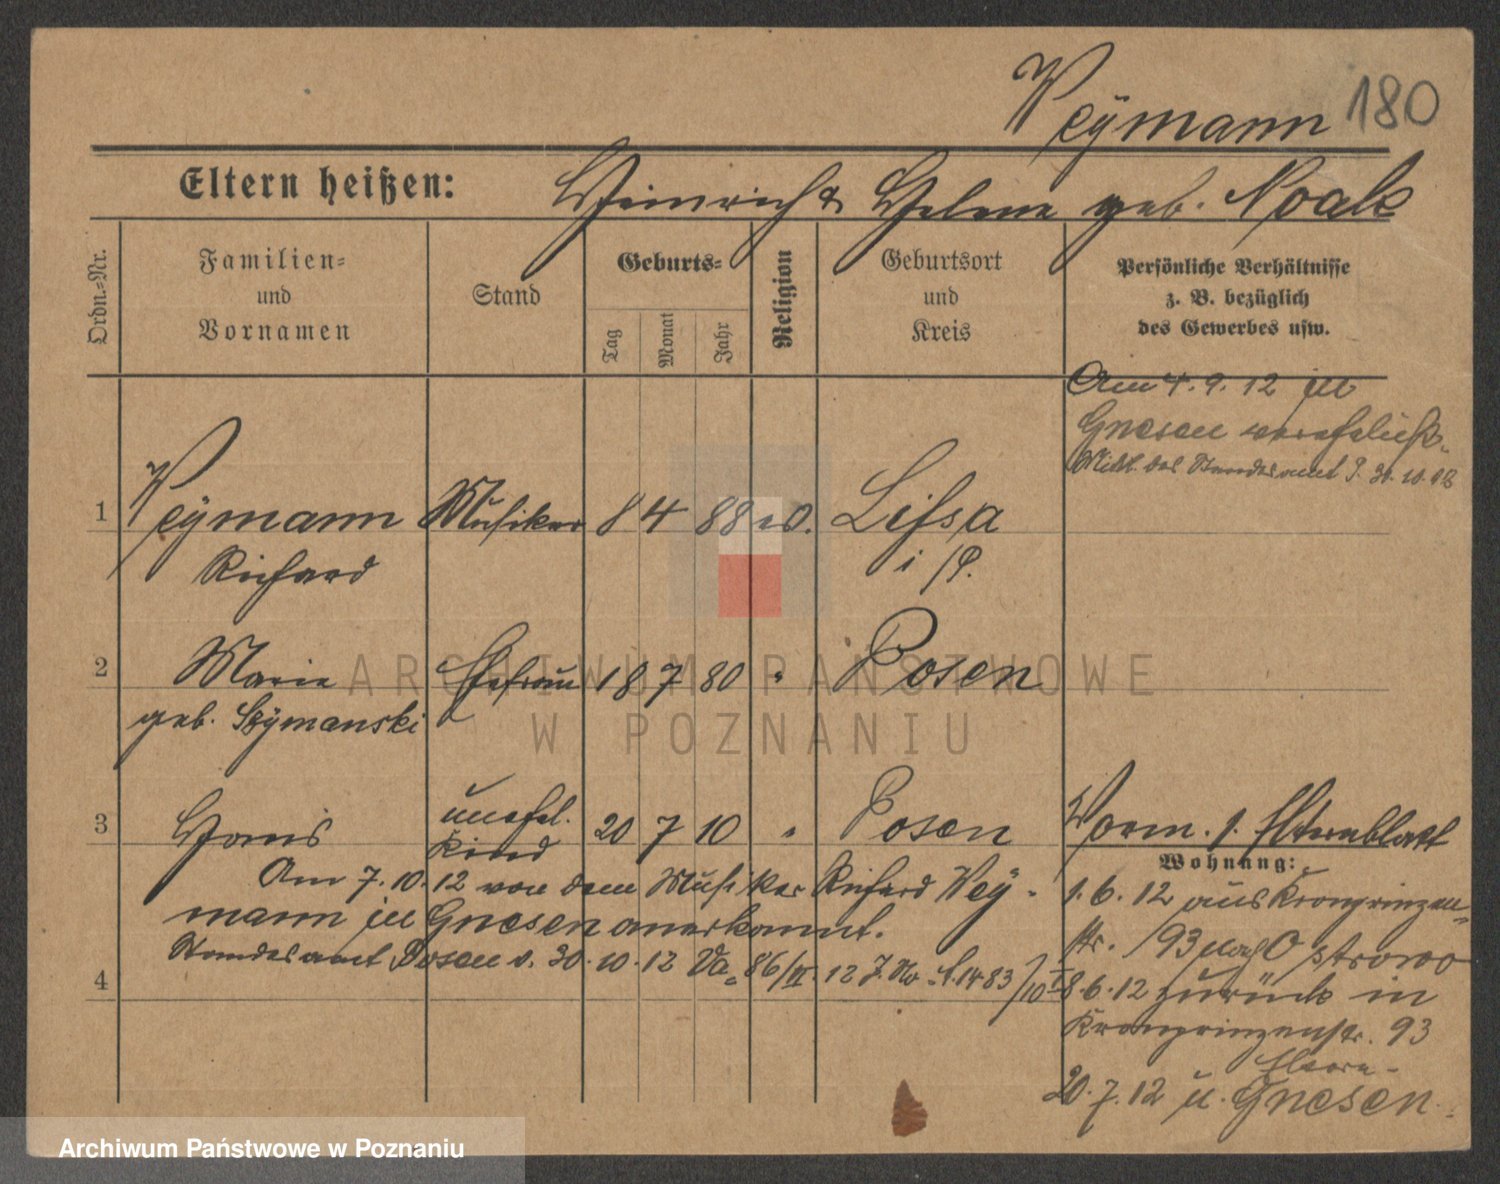 Weÿmann 180
Eltern heißen: Heinrich & Helene geb. Noak
Ordn.=Nr.
Familien=
und
Vornamen
Stand
Geburts=
Tag
Monat
Jahr
Religion
Geburtsort
und
Kreis
Persönliche Verhältnisse
z. B. bezüglich
des Gewerbes usw.
Am 4. 9. 12 in
Gnesen verehelicht.
Mitt. des Standesamt P. 30. 10. 12
1 Weÿmann Musiker 8 4 88 ev. Lissa
Richard i/P.
2 Marie Ehefrau 18 7 80 " Posen
geb. Szÿmanski
3 Hans unehel. Kind 20 7 10 " Posen Vorm. s. Elternblatt
Am 7. 10. 12 von dem Musiker Richard Weÿ-
mann in Gnesen anerkannt.
Standesamt Posen v. 30. 10. 12 86/II. 12 J. No 1483
4
Wohnung:
1. 6. 12 aus Kronprinzen-
str. 93 nach Ostrowo
8. 6. 12 zurück in
Kronprinzenstr. 93
20. 7. 12 n. Gnesen.
ARCHIWUM PAŃSTWOWE
W POZNANIU
Archiwum Państwowe w Poznaniu